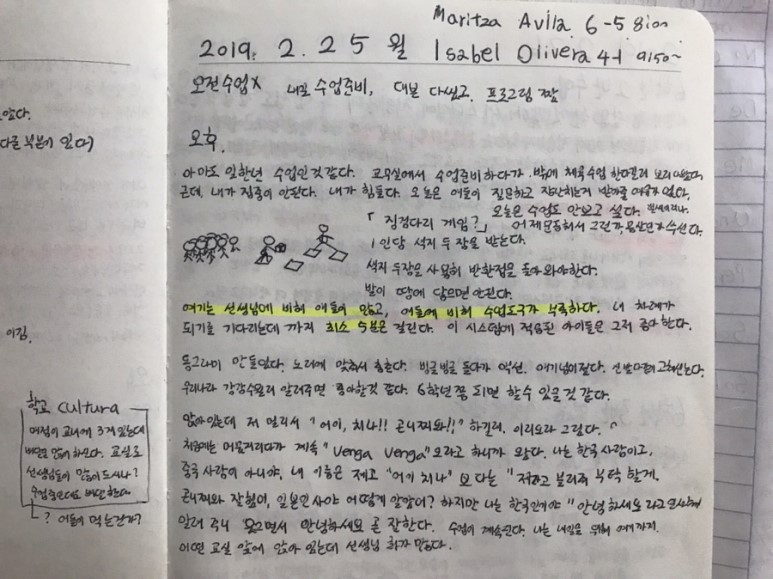 Maritza Avila 6-5
2019. 2. 25 월 Isabel Olivera 4-1 9:50~
오전수업X 내일 수업준비, 대본 다썼고 프로그램 짬
오후.
아마도 일학년 수업인것 같다. 교무실에서 수업준비하다가 밖에 체육수업 한다길래 보러나왔다.
근데, 내가 집중이 안된다. 내가 힘들다. 오늘은 애들이 질문하고 장난치는거 받아줄 여유가 없다.
오늘은 수업도 안보고 싶다.
「징검다리 게임?」
1인당 석지 두장을 받는다.
석지 두장을 사용해 반환점을 돌아 와야한다.
발이 땅에 닿으면 안된다.
여기는 선생님에 비해 애들이 많고, 애들에 비해 수업도구가 부족하다. 내 차례가
되기를 기다리는데 까지 최소 5분은 걸린다. 이 시스템에 적응된 아이들은 그저 좋아한다.
동그라미 만들었다. 노래에 맞춰서 춤춘다. 빙글빙글 돌다가 액션.
우리나라 강강수월래 알려주면 좋아할것 같다. 6학년쯤 되면 할수 있을것 같다.
앉아있는데 저 멀리서 "어이, 치나!! 곤니찌와!!" 하길래, 이리오라 그랬다.
처음에는 머뭇거리다가 계속 "Venga Venga" 오라고 하니까 왔다. 나는 한국 사람이고,
중국 사람이 아니야, 내 이름은 제고 "어이 치나" 보다는 "제라고 불러줘 부탁 할게.
곤니찌와 잘했어, 일본인사야 어떻게 알았어? 하지만 나는 한국인이야 "안녕하세요 라고 인사해
알려 주니 웃으면서 안녕하세요 곧 잘한다. 수업이 계속된다. 나는 내일을 위해 여기까지.
어떤 교실 앞에 앉아 있는데 선생님 화가 많다.
많다.
다른 부분이 있다)
이김.
학교 Cultura
매점이 교내에 3개 있는데
선생님들이 많이 드시나?
↳? 애들이 먹는건가?